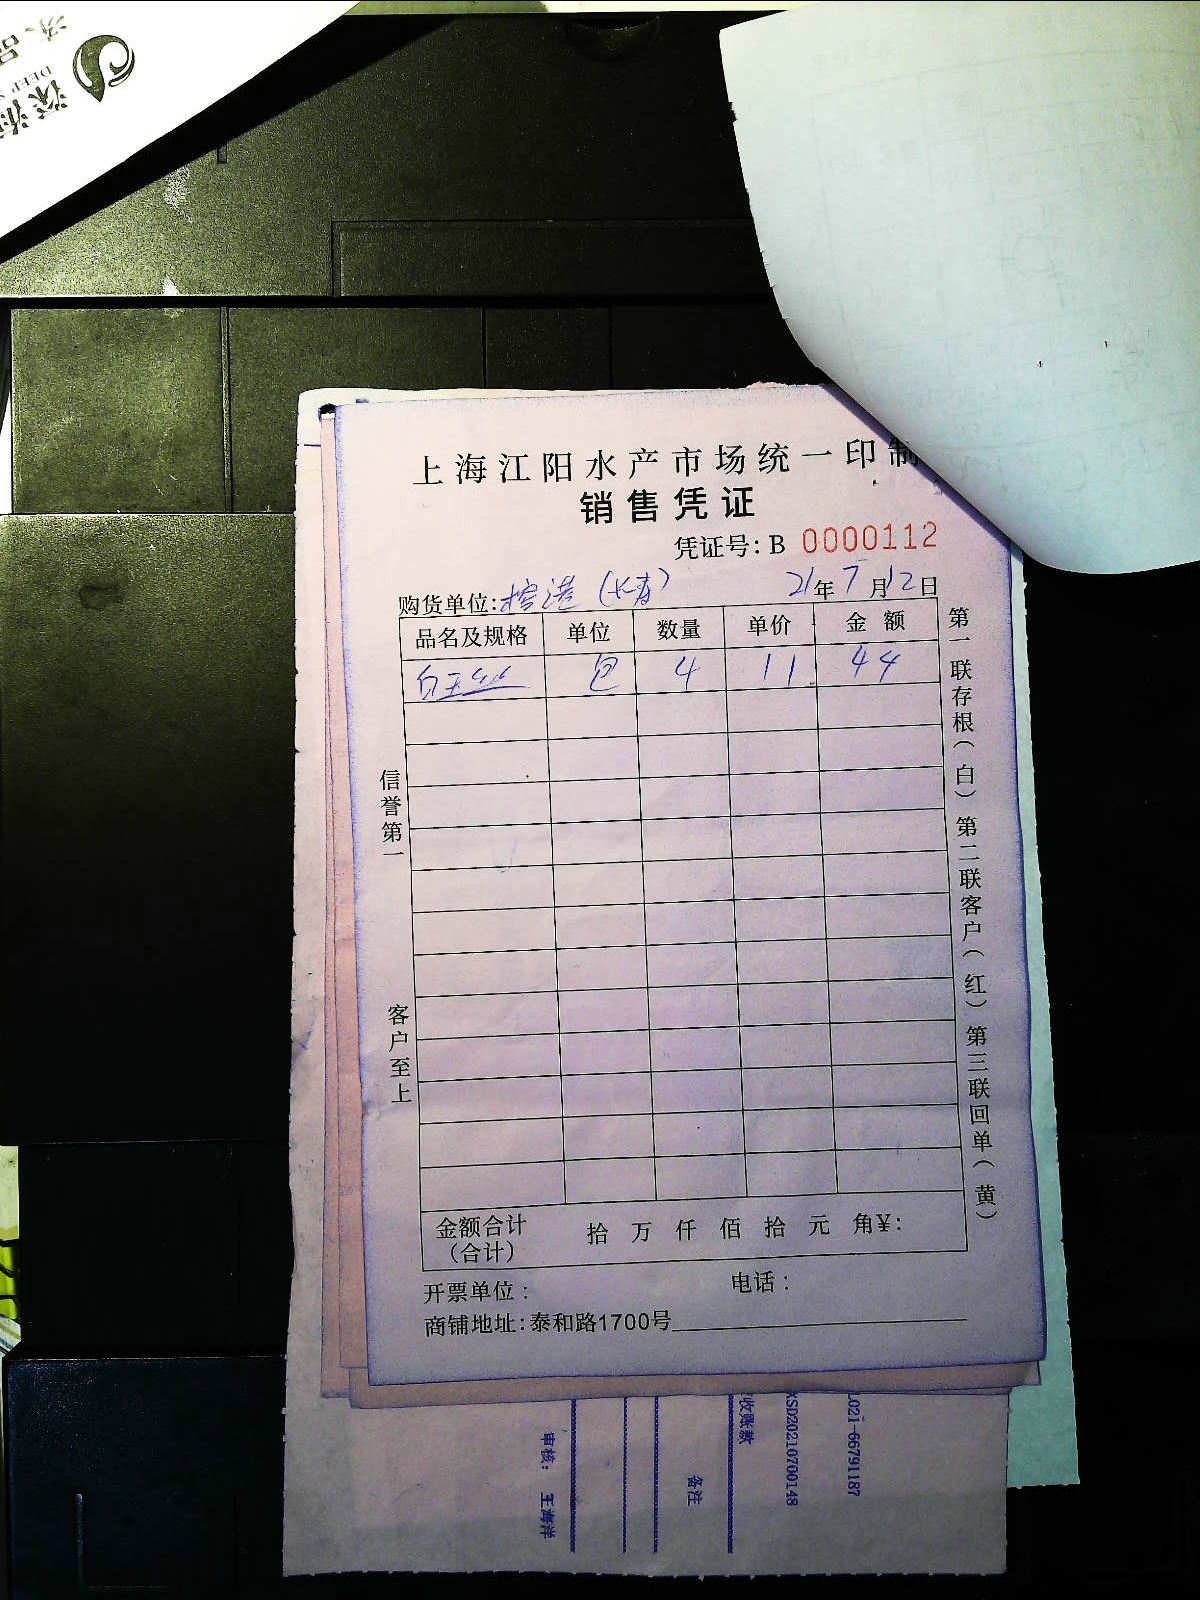 DEEP
上海江阳水产市场统一印制
销售凭证
凭证号: B 0000112
购货单位: 港 (长青) 21年7月12日
品名及规格 单位 数量 单价 金额
白玉丝 包 4 11 44
信誉第一
客户至上
第一联存根(白) 第二联客户(红) 第三联回单(黄)
金额合计
(合计)
拾 万 仟 佰 拾 元 角¥:
开票单位:
电话:
商铺地址:泰和路1700号
021-66791187
XSD20210700148
收账款
备注
审核: 王海洋